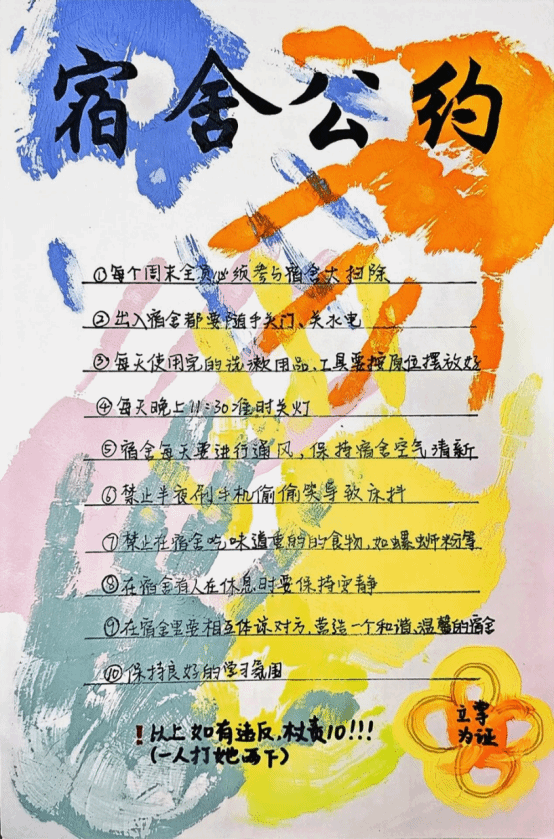 宿舍公约
①每个周末全员必须参与宿舍大扫除
②出入宿舍都要随手关门、关水电
③每天使用完的洗漱用品、工具要按原位摆放好
④每天晚上11:30准时关灯
⑤宿舍每天要进行通风,保持宿舍空气清新
⑥禁止半夜刷手机偷偷笑导致床抖
⑦禁止在宿舍吃味道重的的食物,如螺蛳粉等
⑧在宿舍有人在休息时要保持安静
⑨在宿舍里要相互体谅对方,营造一个和谐、温馨的宿舍
⑩保持良好的学习氛围
!以上如有违反,杖责10!!!
(一人打她两下)
立字
为证